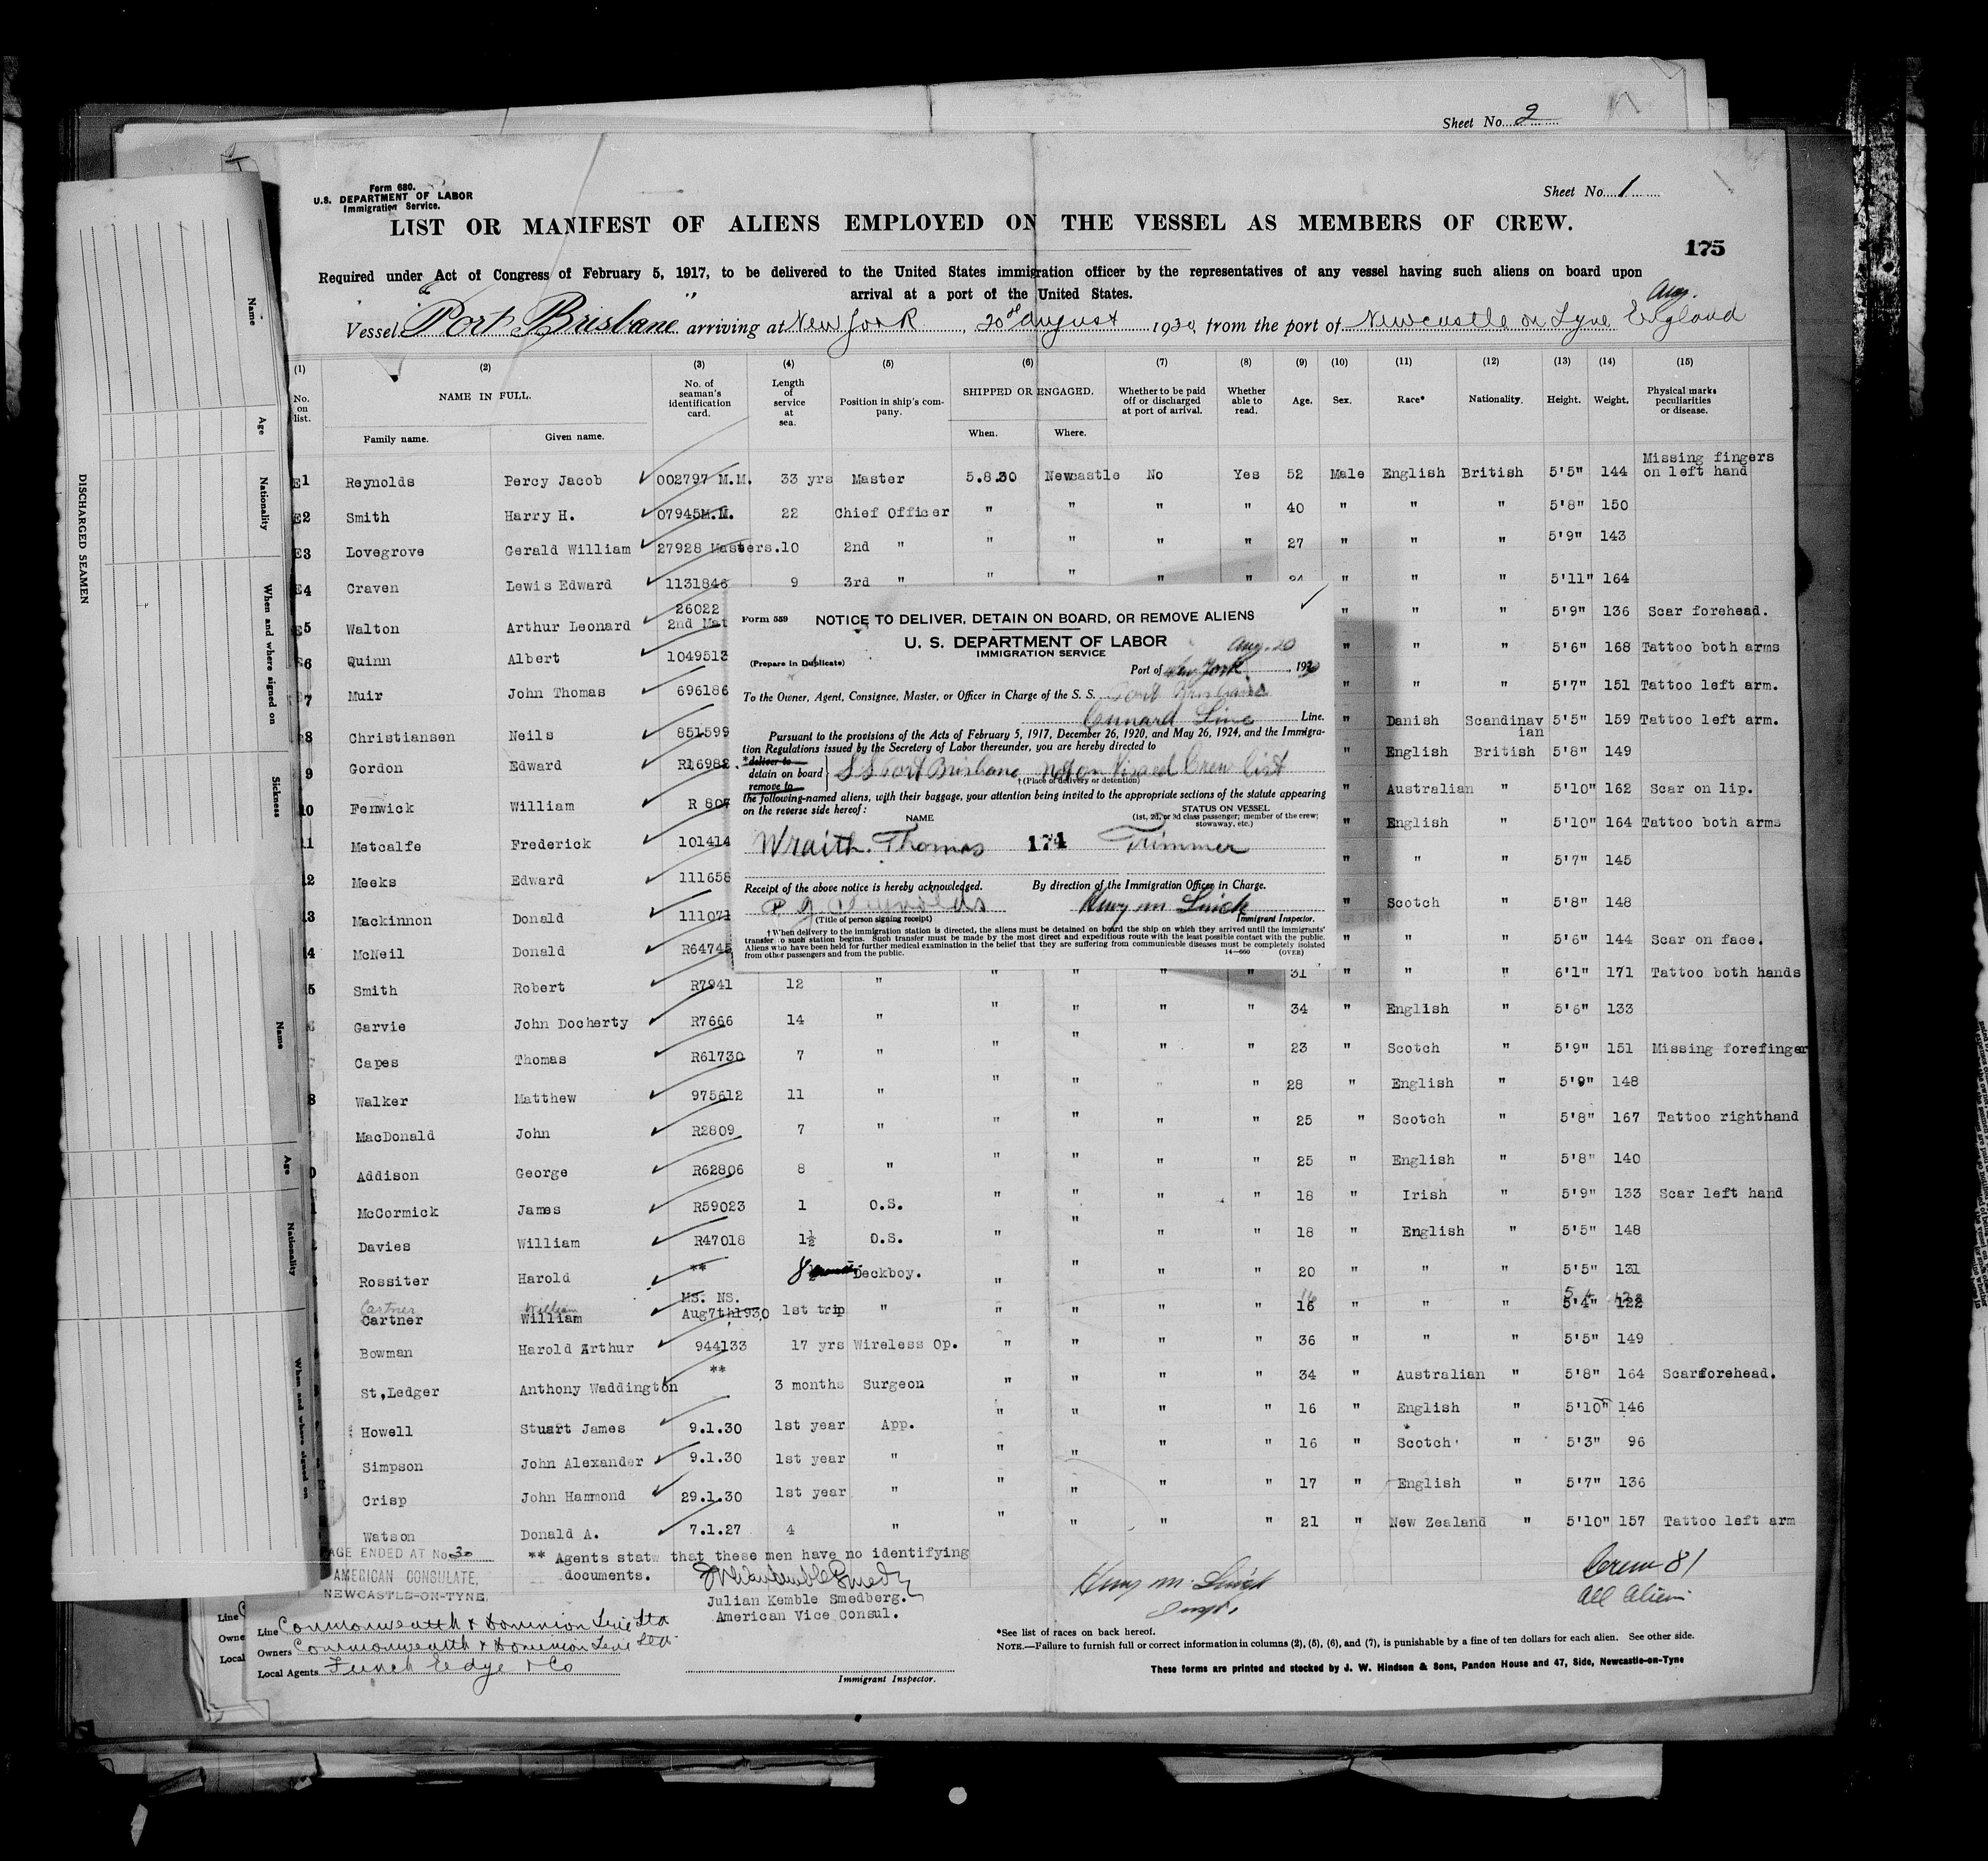 Sheet No. 2
Form 680.
U.S. DEPARTMENT OF LABOR
Immigration Service.
Sheet No. 1
LIST OR MANIFEST OF ALIENS EMPLOYED ON THE VESSEL AS MEMBERS OF CREW.
175
Required under Act of Congress of February 5, 1917, to be delivered to the United States immigration officer by the representatives of any vessel having such aliens on board upon
arrival at a port of the United States.
Aug.
Vessel "Port Brisbane" arriving at New York, 20th August 1930, from the port of Newcastle on Tyne England
(1) (2) (3) (4) (5) (6) (7) (8) (9) (10) (11) (12) (13) (14) (15)
No. on list. NAME IN FULL. No. of seaman's identification card. Length of service at sea. Position in ship's company. SHIPPED OR ENGAGED. Whether to be paid off or discharged at port of arrival. Whether able to read. Age. Sex. Race* Nationality. Height. Weight. Physical marks peculiarities or disease.
Family name. Given name. When. Where.
E1 Reynolds Percy Jacob 002797 M.M. 33 yrs Master 5.8.30 Newcastle No Yes 52 Male English British 5'5" 144 Missing fingers on left hand
E2 Smith Harry H. 07945M.M. 22 Chief Officer " " " " 40 " " " 5'8" 150
E3 Lovegrove Gerald William 27928 Masters. 10 2nd " " " " " 27 " " " 5'9" 143
E4 Craven Lewis Edward 1131846 9 3rd " " " " " 24 " " " 5'11" 164
E5 Walton Arthur Leonard 26022 2nd Mat " " " 5'9" 136 Scar forehead.
6 Quinn Albert 1049513 " " " 5'6" 168 Tattoo both arms
7 Muir John Thomas 696186 " " " 5'7" 151 Tattoo left arm.
8 Christiansen Neils 851599 " Danish Scandinavian 5'5" 159 Tattoo left arm.
9 Gordon Edward R16982 " English British 5'8" 149
10 Fenwick William R 807 " Australian " 5'10" 162 Scar on lip.
11 Metcalfe Frederick 101414 " English " 5'10" 164 Tattoo both arms
12 Meeks Edward 111658 " " " 5'7" 145
13 Mackinnon Donald 111071 " Scotch " 5'8" 148
14 McNeil Donald R64745 " " " 5'6" 144 Scar on face.
5 Smith Robert R7941 12 " " " " " 31 " " " 6'1" 171 Tattoo both hands
Garvie John Docherty R7666 14 " " " " " 34 " English " 5'6" 133
Capes Thomas R61730 7 " " " " " 23 " Scotch " 5'9" 151 Missing forefinger
8 Walker Matthew 975612 11 " " " " " 28 " English " 5'9" 148
MacDonald John R2809 7 " " " " " 25 " Scotch " 5'8" 167 Tattoo righthand
0 Addison George R62806 8 " " " " " 25 " English " 5'8" 140
McCormick James R59023 1 O.S. " " " " 18 " Irish " 5'9" 133 Scar left hand
Davies William R47018 1½ O.S. " " " " 18 " English " 5'5" 148
Rossiter Harold ** 8 Deckboy. " " " " 20 " " " 5'5" 131
Cartner William 16
Cartner William MS. NS. Aug7th1930 1st trip " " " " " 16 " " " 5'4" 122
Bowman Harold Arthur 944133 17 yrs Wireless Op. " " " " 36 " " " 5'5" 149
St,Ledger Anthony Waddington ** 3 months Surgeon " " " " 34 " Australian " 5'8" 164 Scarforehead.
Howell Stuart James 9.1.30 1st year App. " " " " 16 " English " 5'10" 146
Simpson John Alexander 9.1.30 1st year " " " " " 16 " Scotch " 5'3" 96
Crisp John Hammond 29.1.30 1st year " " " " " 17 " English " 5'7" 136
Watson Donald A. 7.1.27 4 " " " " " 21 " New Zealand " 5'10" 157 Tattoo left arm
AGE ENDED AT No 30
AMERICAN CONSULATE,
NEWCASTLE-ON-TYNE,
** Agents statw that these men have no identifying
documents.
Julian Kemble Smedberg.
American Vice Consul.
Henry M. Linick
Inspr.
Crew 81
All Alien
Line Commonwealth & Dominion Line Ltd
Owners Commonwealth & Dominion Line Ltd
Local Agents Funch Edye & Co
Immigrant Inspector.
*See list of races on back hereof.
NOTE.—Failure to furnish full or correct information in columns (2), (5), (6), and (7), is punishable by a fine of ten dollars for each alien. See other side.
These forms are printed and stocked by J. W. Hindson & Sons, Pandon House and 47, Side, Newcastle-on-Tyne
Line
Owne
Local
Form 559
NOTICE TO DELIVER, DETAIN ON BOARD, OR REMOVE ALIENS
U. S. DEPARTMENT OF LABOR
IMMIGRATION SERVICE
(Prepare in Duplicate)
Aug. 20
Port of New York, 1930
To the Owner, Agent, Consignee, Master, or Officer in Charge of the S. S. Port Brisbane
Cunard Line Line.
Pursuant to the provisions of the Acts of February 5, 1917, December 26, 1920, and May 26, 1924, and the Immigra-
tion Regulations issued by the Secretary of Labor thereunder, you are hereby directed to
*deliver to
detain on board
remove to
SS Port Brisbane Not on Visaed Crew List
†(Place of delivery or detention)
the following-named aliens, with their baggage, your attention being invited to the appropriate sections of the statute appearing
on the reverse side hereof:
NAME
STATUS ON VESSEL
(1st, 2d, or 3d class passenger; member of the crew;
stowaway, etc.)
Wraith. Thomas 174 Trimmer
Receipt of the above notice is hereby acknowledged. By direction of the Immigration Officer in Charge.
P. J. Reynolds Henry M Linick
(Title of person signing receipt) Immigrant Inspector.
†When delivery to the immigration station is directed, the aliens must be detained on board the ship on which they arrived until the immigrants'
transfer to such station begins. Such transfer must be made by the most direct and expeditious route with the least possible contact with the public.
Aliens who have been held for further medical examination in the belief that they are suffering from communicable diseases must be completely isolated
from other passengers and from the public. 14—660 (OVER)
DISCHARGED SEAMEN
Name
Age
Nationality
When and where signed on
Sickness
Name
Age
Nationality
When and where signed on